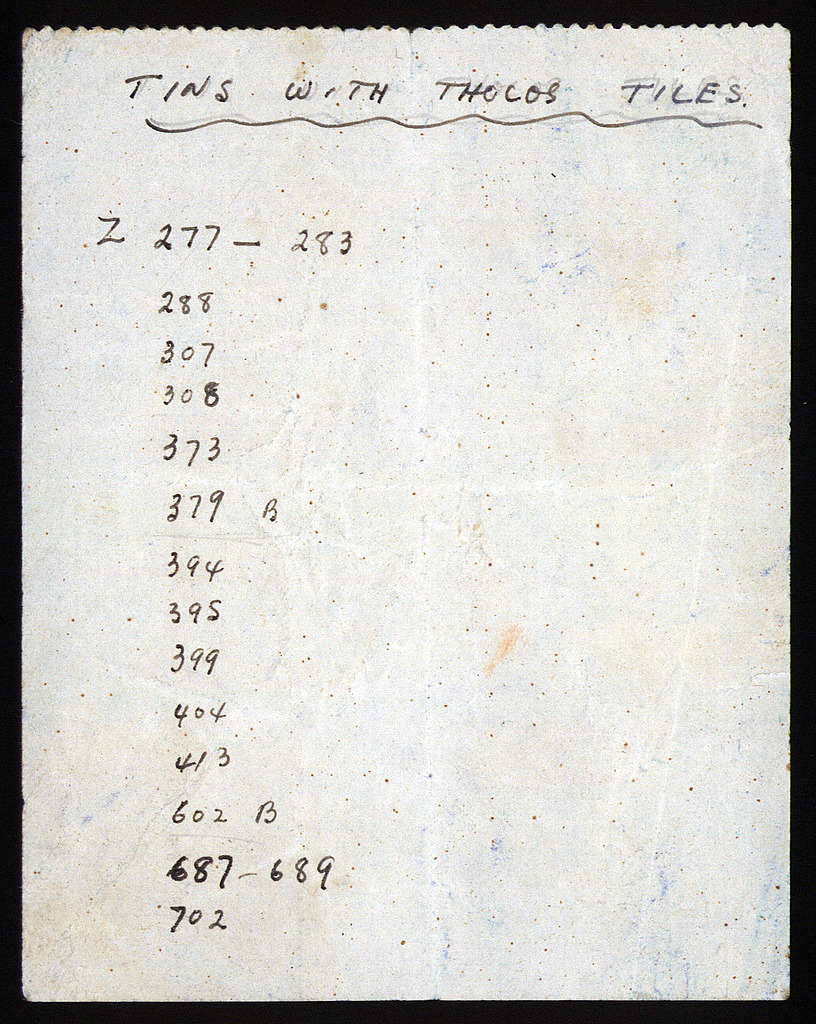 TINS WITH THOLOS TILES.
Z 277 – 283
288
307
308
373
379 B
394
395
399
404
413
602 B
687 – 689
702